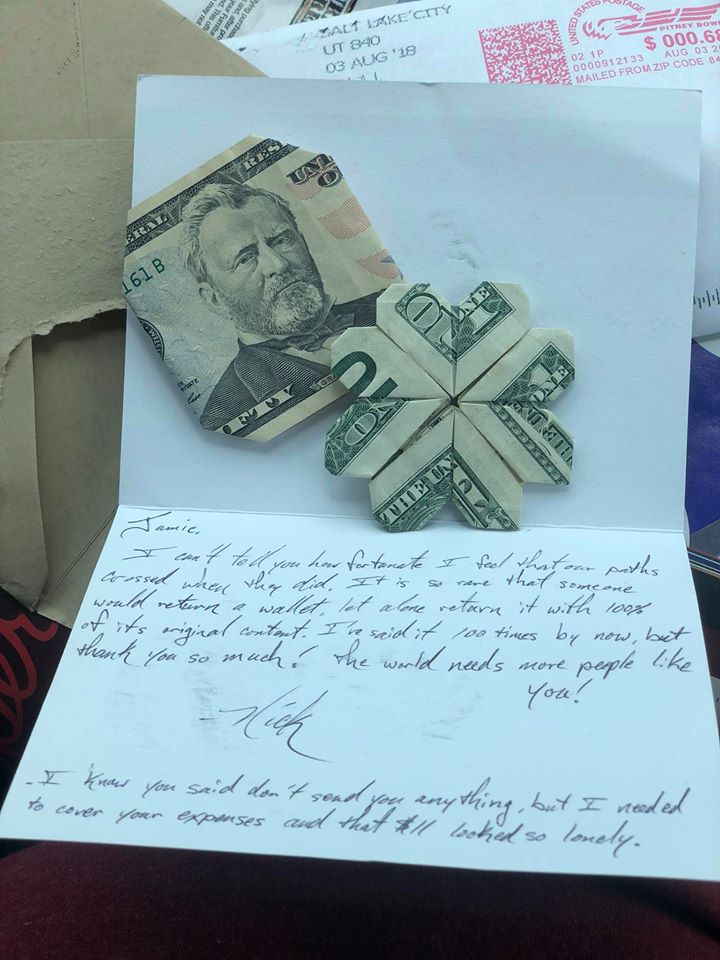 SALT LAKE CITY
UT 840
03 AUG '18
UNITED STATES POSTAGE
PITNEY BOW
$ 000.68
02 1P
0000912133 AUG 03 20
MAILED FROM ZIP CODE 84
ERAL RES
UNI
O
161 B
FIFTY
ONE
ONE
THE UN
Jamie,
I can't tell you how fortunate I feel that our paths
crossed when they did. It is so rare that someone
would return a wallet, let alone return it with 100%
of its original content. I've said it 100 times by now, but
thank you so much! The world needs more people like
you!
-Nick
-I know you said don't send you anything, but I needed
to cover your expenses and that $11 looked so lonely.